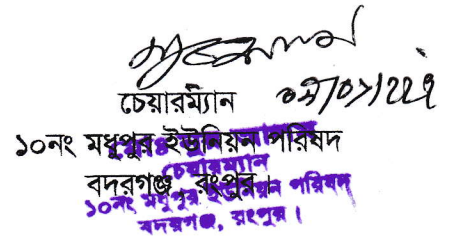 চেয়ারম্যান
১০নং মধুপুর ইউনিয়ন পরিষদ
বদরগঞ্জ, রংপুর।
চেয়ারম্যান
১০নং মধুপুর ইউনিয়ন পরিষদ
বদরগঞ্জ, রংপুর।